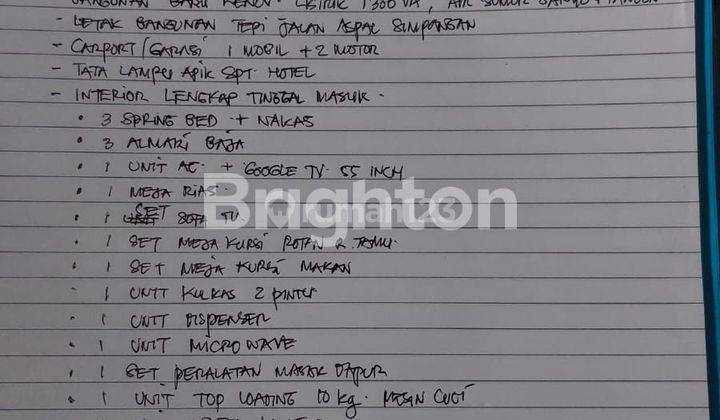 BANGUNAN BARU RENOV. LISTRIK 1300 VA, AIR SUMUR
- LETAK BANGUNAN TEPI JALAN ASPAL SIMPANGAN
- CARPORT/GARASI 1 MOBIL + 2 MOTOR
- TATA LAMPU APIK SPT. HOTEL
- INTERIOR LENGKAP TINGGAL MASUK.
• 3 SPRING BED + NAKAS
• 3 ALMARI BAJA
• 1 UNIT AC. + GOOGLE TV. 55 INCH
• 1 MEJA RIAS.
• 1 SET SOFA TV.
Brighton
rumah123
• 1 SET MEJA KURSI ROTAN R. TAMU.
• 1 SET MEJA KURSI MAKAN
• 1 UNIT KULKAS 2 PINTU
• 1 UNIT DISPENSER
• 1 UNIT MICROWAVE
• 1 SET PERALATAN MASAK DAPUR
• 1 UNIT TOP LOADING 10 kg. MESIN CUCI